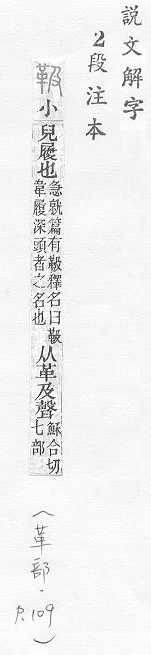 說文解字
2段注本
靸
小兒履也
急就篇有靸釋名曰靸
韋履深頭者之名也
从革及聲
穌合切
七部
(革部.P.109)